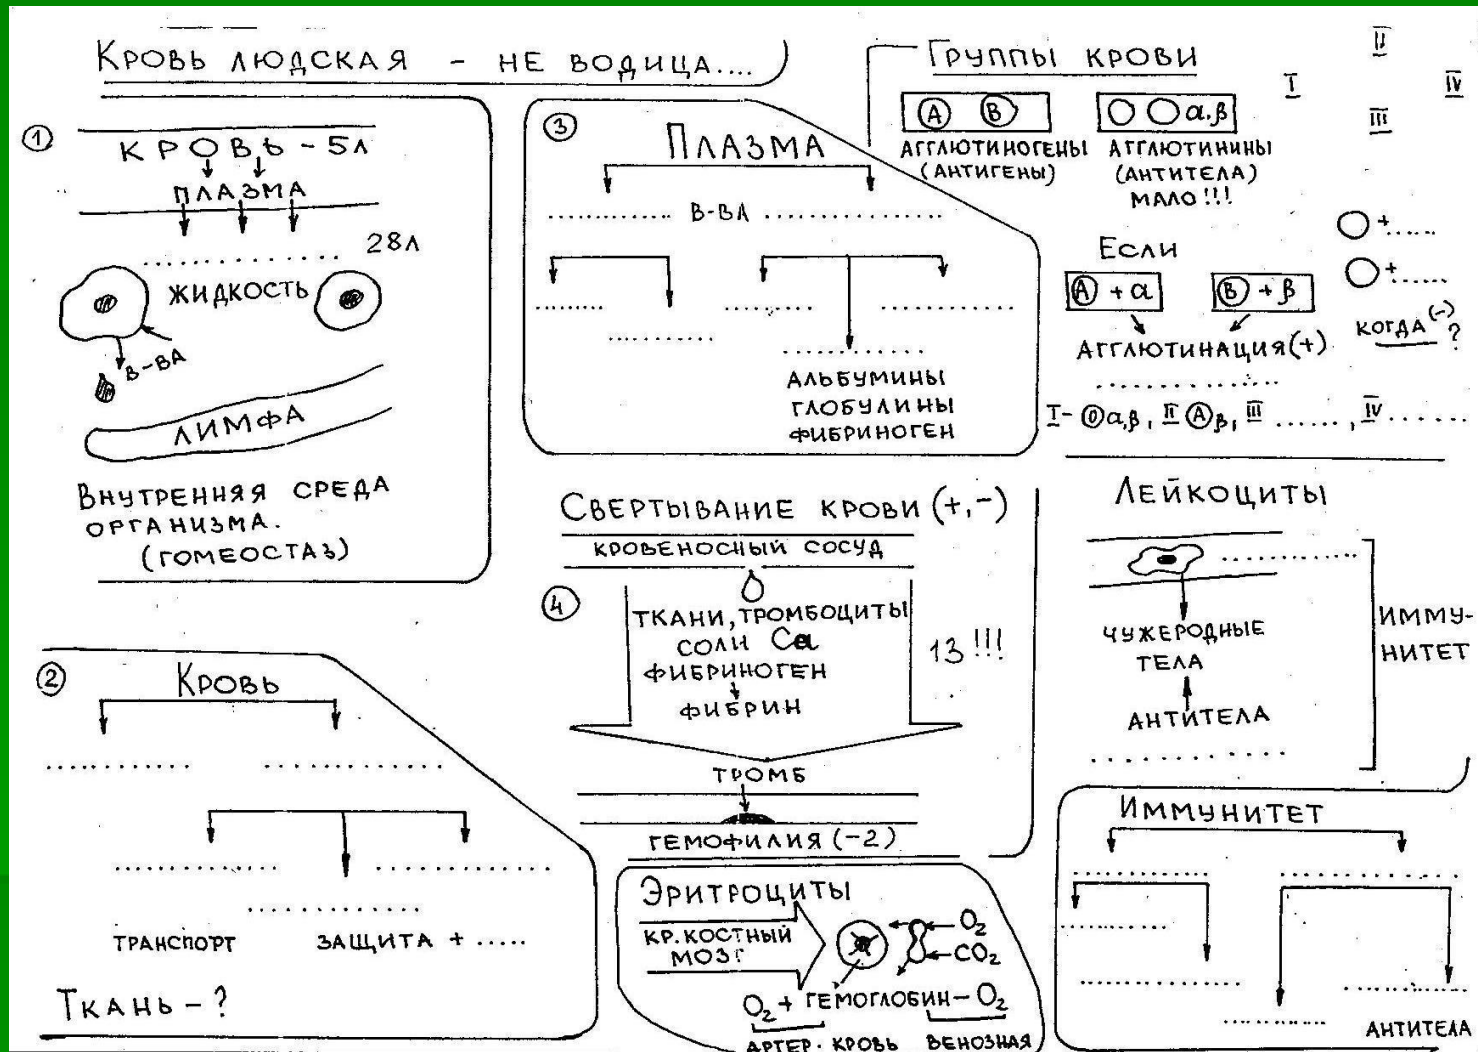 Кровь людская - не водица....
1
кровь - 5л
плазма
.................. 28л
жидкость
в-ва
лимфа
Внутренняя среда
организма.
(гомеостаз)
2
Кровь
............... ..................
................. ..................
..................
транспорт защита + .....
Ткань - ?
3
Плазма
............... в-ва ..................
........ .........
............ ............
...............
альбумины
глобулины
фибриноген
Свертывание крови (+,-)
кровеносный сосуд
4
ткани, тромбоциты
соли Ca
фибриноген
фибрин
13!!!
тромб
гемофилия (-2)
Эритроциты
кр. костный
мозг
O₂
CO₂
O₂ + гемоглобин - O₂
артер. кровь венозная
Группы крови
A B
α,β
агглютиногены
(антигены)
агглютинины
(антитела)
мало!!!
I II III IV
Если
A + α
B + β
агглютинация (+)
..................
+ ......
+ ......
когда (-) ?
I - 0 α,β, II A β, III ......, IV ......
Лейкоциты
..............
чужеродные
тела
антитела
..................
иммунитет
Иммунитет
............... ...............
............
............... ...............
............
антитела